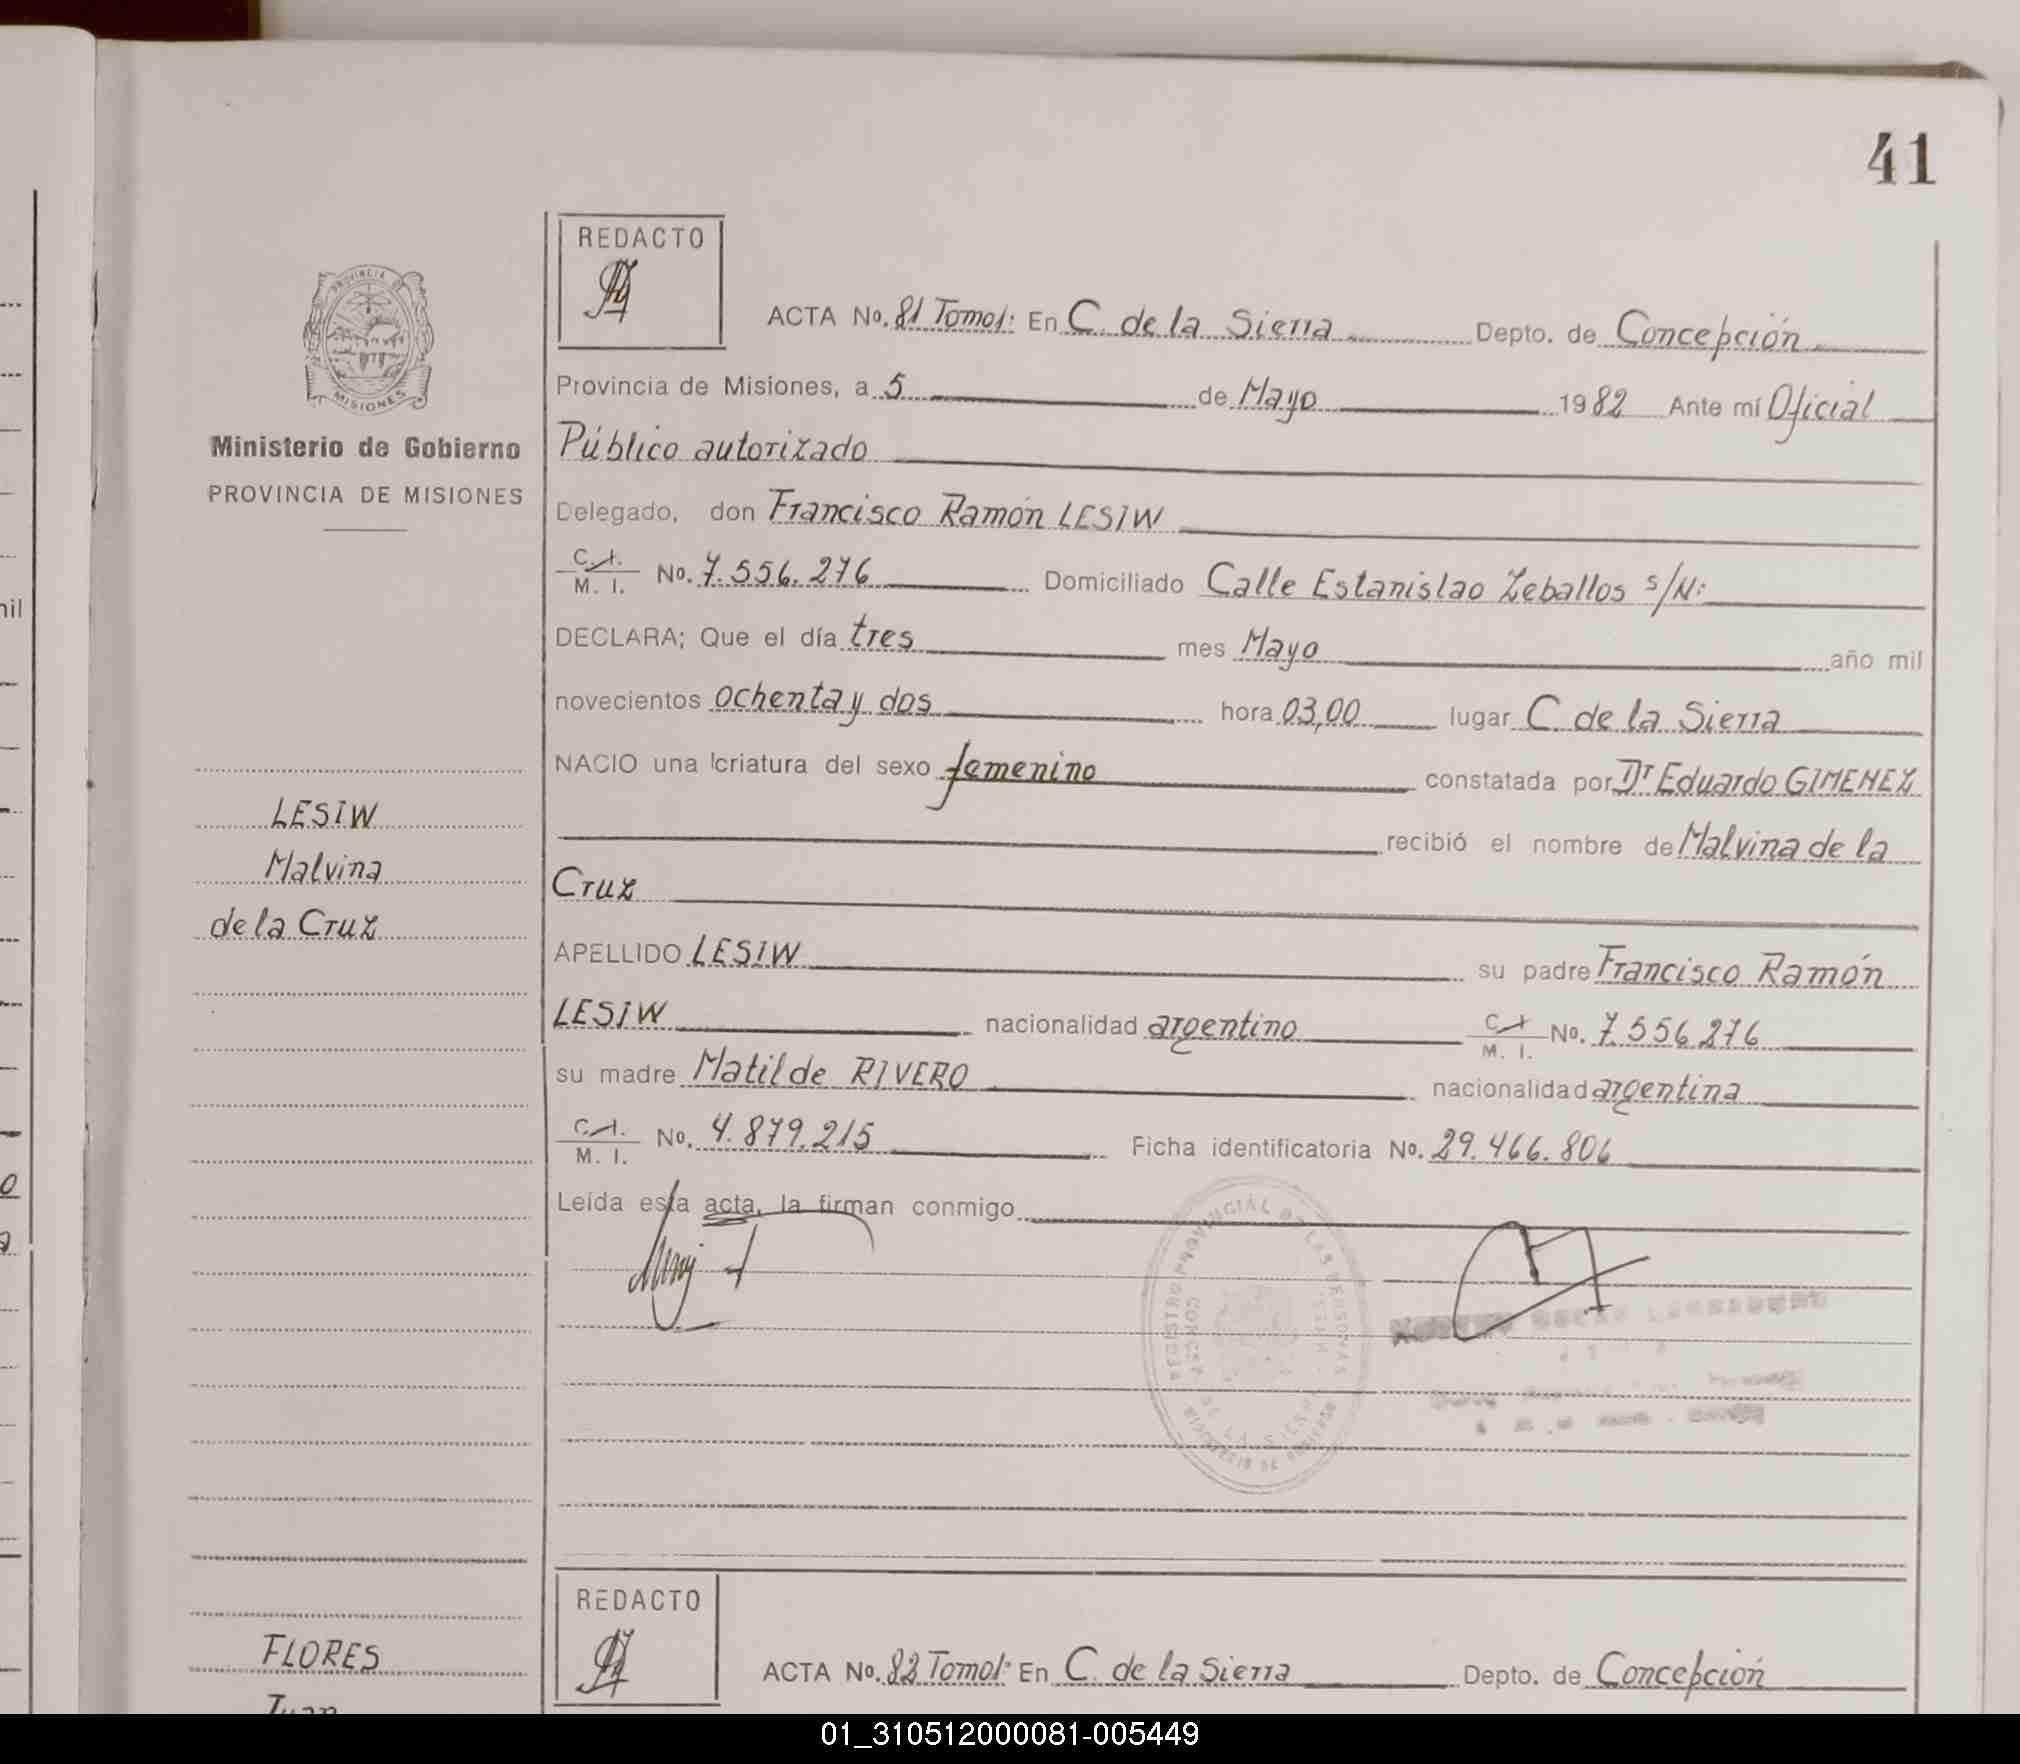 41
REDACTO
PROVINCIA DE
MISIONES
Ministerio de Gobierno
PROVINCIA DE MISIONES
ACTA No. 81 Tomo I: En C. de la Sierra Depto. de Concepción
Provincia de Misiones, a 5 de Mayo 1982 Ante mí Oficial
Público autorizado
Delegado, don Francisco Ramón LESIW
C.I.
M. I. No. 7.556.276 Domiciliado Calle Estanislao Zeballos s/N:
DECLARA; Que el día tres mes Mayo año mil
novecientos ochenta y dos hora 03,00 lugar C. de la Sierra
NACIO una criatura del sexo femenino constatada por Dr Eduardo GIMENEZ
recibió el nombre de Malvina de la
Cruz
LESIW
Malvina
de la Cruz
APELLIDO LESIW su padre Francisco Ramón
LESIW nacionalidad argentino C.I. M. I. No. 7.556.276
su madre Matilde RIVERO nacionalidad argentina
C.I.
M. I. No. 4.879.215 Ficha identificatoria No. 29.466.806
Leída esta acta, la firman conmigo
REGISTRO PROVINCIAL DE LAS PERSONAS
MINISTERIO DE GOBIERNO
DE LA SIERRA
REDACTO
ACTA No. 82 Tomo I: En C. de la Sierra Depto. de Concepción
FLORES
Juan
nil
01_310512000081-005449